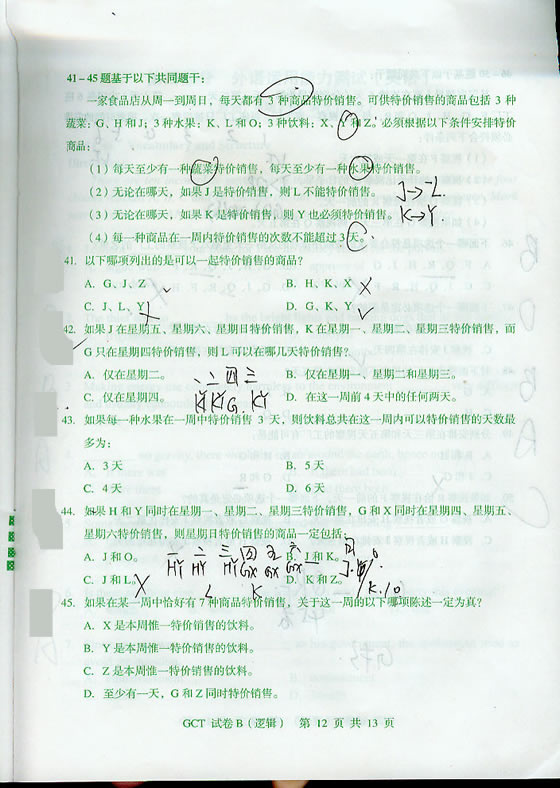 41-45题基于以下共同题干:
一家食品店从周一到周日,每天都有 3 种商品特价销售。可供特价销售的商品包括 3 种
蔬菜:G、H和J;3 种水果:K、L和O;3 种饮料:X、Y和Z。必须根据以下条件安排特价
商品:
(1)每天至少有一种蔬菜特价销售,每天至少有一种水果特价销售。
(2)无论在哪天,如果J是特价销售,则L不能特价销售。 J→-L
(3)无论在哪天,如果K是特价销售,则Y也必须特价销售。 K→Y
(4)每一种商品在一周内特价销售的次数不能超过3天。
41. 以下哪项列出的是可以一起特价销售的商品?
A. G、J、Z B. H、K、X X
C. J、L、Y X D. G、K、Y
42. 如果J在星期五、星期六、星期日特价销售,K在星期一、星期二、星期三特价销售,而
G只在星期四特价销售,则L可以在哪几天特价销售?
A. 仅在星期二。 B. 仅在星期一、星期二和星期三。
一 二 四 三
C. 仅在星期四。 D. 在这一周前4天中的任何两天。
KY KY G. KY
43. 如果每一种水果在一周中特价销售 3 天,则饮料总共在这一周内可以特价销售的天数最
多为:
A. 3天 B. 5天
C. 4天 D. 6天
44. 如果H和Y同时在星期一、星期二、星期三特价销售,G和X同时在星期四、星期五、
星期六特价销售,则星期日特价销售的商品一定包括:
A. J和O。 B. J和K。
一 二 三 四 五 六 日
HY HY HY GX GX GX J.
C. J和L。 X D. K和Z。
L K K.
45. 如果在某一周中恰好有7种商品特价销售,关于这一周的以下哪项陈述一定为真?
A. X是本周惟一特价销售的饮料。
B. Y是本周惟一特价销售的饮料。
C. Z是本周惟一特价销售的饮料。
D. 至少有一天,G和Z同时特价销售。
GCT 试卷B(逻辑) 第 12 页 共 13 页